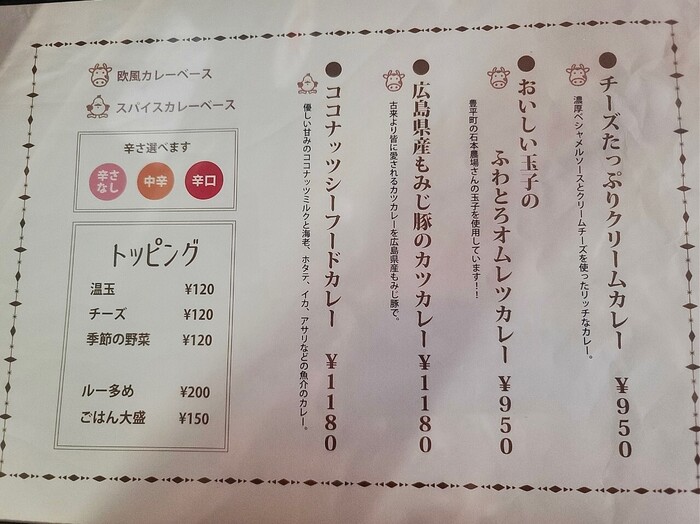 ●チーズたっぷりクリームカレー ¥950
濃厚ベシャメルソースとクリームチーズを使ったリッチなカレー。
●おいしい玉子の
ふわとろオムレツカレー ¥950
豊平町の石本農場さんの玉子を使用しています!!
●広島県産もみじ豚のカツカレー ¥1180
古来より皆に愛されるカツカレーを広島県産もみじ豚で。
●ココナッツシーフードカレー ¥1180
優しい甘みのココナッツミルクと海老、ホタテ、イカ、アサリなどの魚介のカレー。
欧風カレーベース
スパイスカレーベース
辛さ選べます
辛さなし 中辛 辛口
トッピング
温玉 ¥120
チーズ ¥120
季節の野菜 ¥120
ルー多め ¥200
ごはん大盛 ¥150